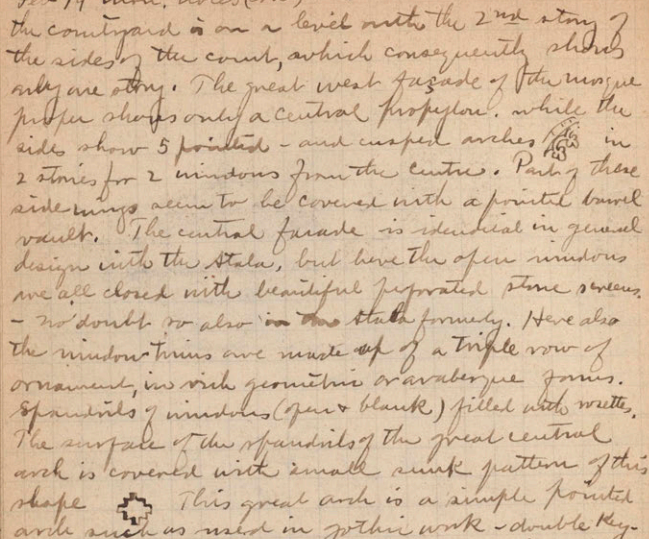 the courtyard is on a level with the 2nd story of
the sides of the court, which consequently shows
only one story. The great west façade of the mosque
proper shows only a central propylon. while the
sides show 5 pointed - and cusped arches in
2 stories for 2 windows from the centre. Part of these
side wings seem to be covered with a pointed barrel
vault. The central facade is identical in general
design with the Atala, but here the open windows
are all closed with beautiful perforated stone screens.
- no doubt so also in the Atala formerly. Here also
the window trims are made up of a triple row of
ornament, in rich geometric or arabesque forms.
Spandrils of windows (open & blank) filled with rosettes.
The surface of the spandrils of the great central
arch is covered with small sunk pattern of this
shape This great arch is a simple pointed
arch such as used in gothic work - double key-